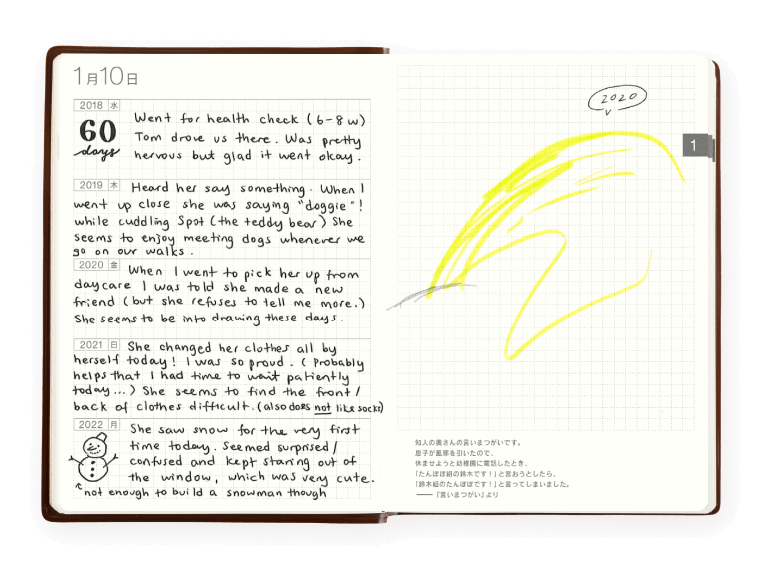 1月10日
2018 水
60
days
Went for health check (6-8w)
Tom drove us there. Was pretty
nervous but glad it went okay.
2019 木
Heard her say something. When I
went up close she was saying "doggie"!
while cuddling Spot (the teddy bear) She
seems to enjoy meeting dogs whenever we
go on our walks.
2020 金
When I went to pick her up from
daycare I was told she made a new
friend (but she refuses to tell me more.)
She seems to be into drawing these days.
2021 日
She changed her clothes all by
herself today! I was so proud. (Probably
helps that I had time to wait patiently
today...) She seems to find the front/
back of clothes difficult. (also does not like socks)
2022 月
She saw snow for the very first
time today. Seemed surprised/
confused and kept staring out of
the window, which was very cute.
not enough to build a snowman though
2020
1
知人の奥さんの言いまつがいです。
息子が風邪を引いたので、
休ませようと幼稚園に電話したとき、
「たんぽぽ組の鈴木です！」と言おうとしたら、
「鈴木組のたんぽぽです！」と言ってしまいました。
──『言いまつがい』より